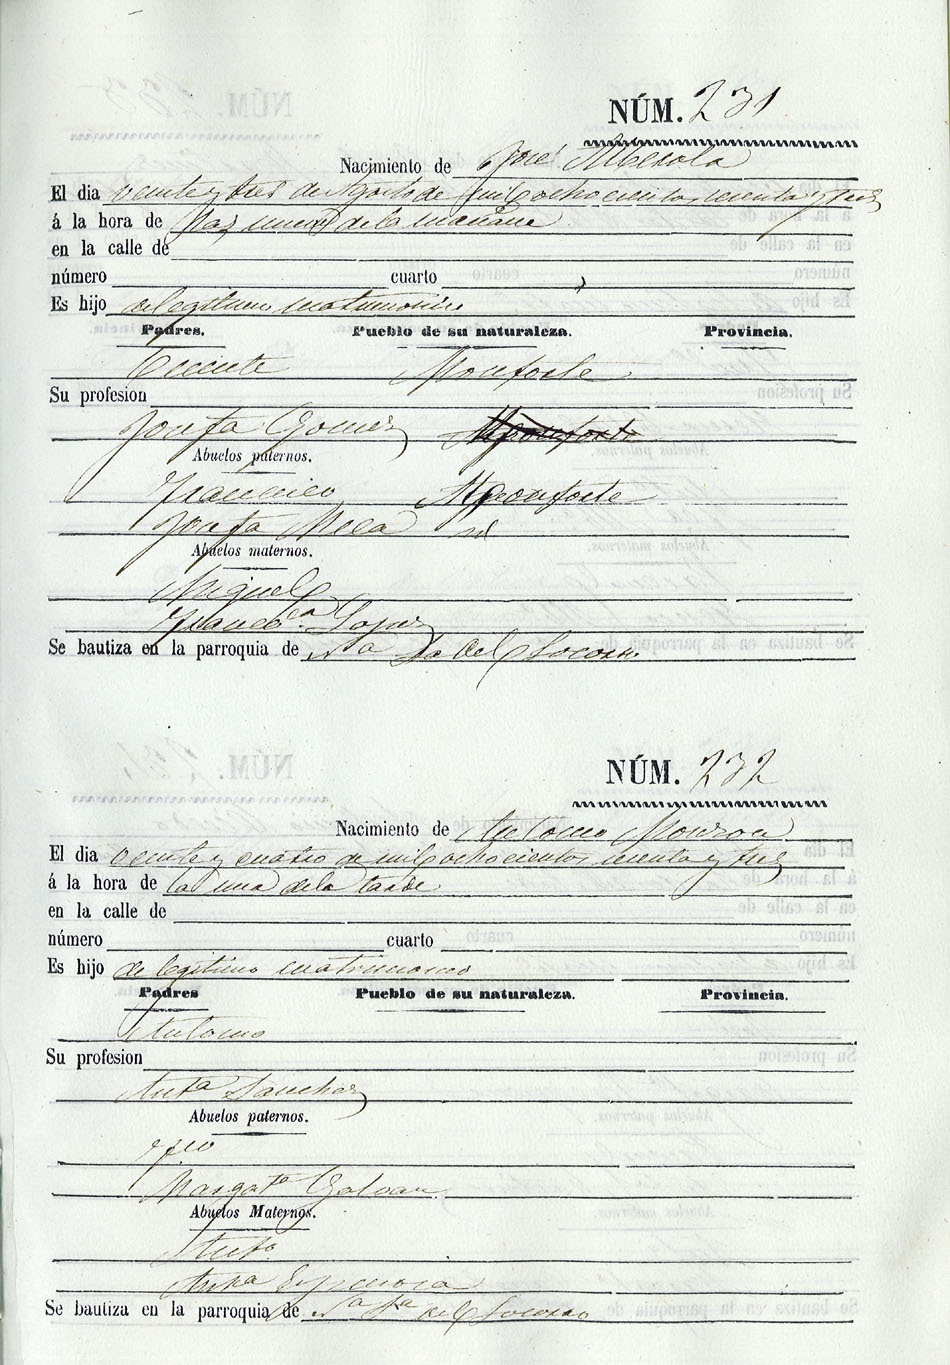 NÚM. 231
Nacimiento de José Alberola
El dia veinte y tres de Agosto de mil ochocientos sesenta y tres
á la hora de las nueve de la mañana
en la calle de
número cuarto
Es hijo de legitimo matrimonio
Padres. Pueblo de su naturaleza. Provincia.
Vicente Monforte
Su profesion
Josefa Gomez Monforte
Abuelos paternos.
Francisco Monforte
Josefa Mira id
Abuelos maternos.
Miguel
Francca. Lopez
Se bautiza en la parroquia de Na Sa del Socorro
NÚM. 232
Nacimiento de Antonio Monzon
El dia veinte y cuatro de mil ochocientos sesenta y tres
á la hora de la una de la tarde
en la calle de
número cuarto
Es hijo de legitimo matrimonio
Padres Pueblo de su naturaleza. Provincia.
Antonio
Su profesion
Anta Sanchez
Abuelos paternos.
Fco
Margata Galvan
Abuelos Maternos.
Anto
Anta Espinosa
Se bautiza en la parroquia de Na Sa del Socorro